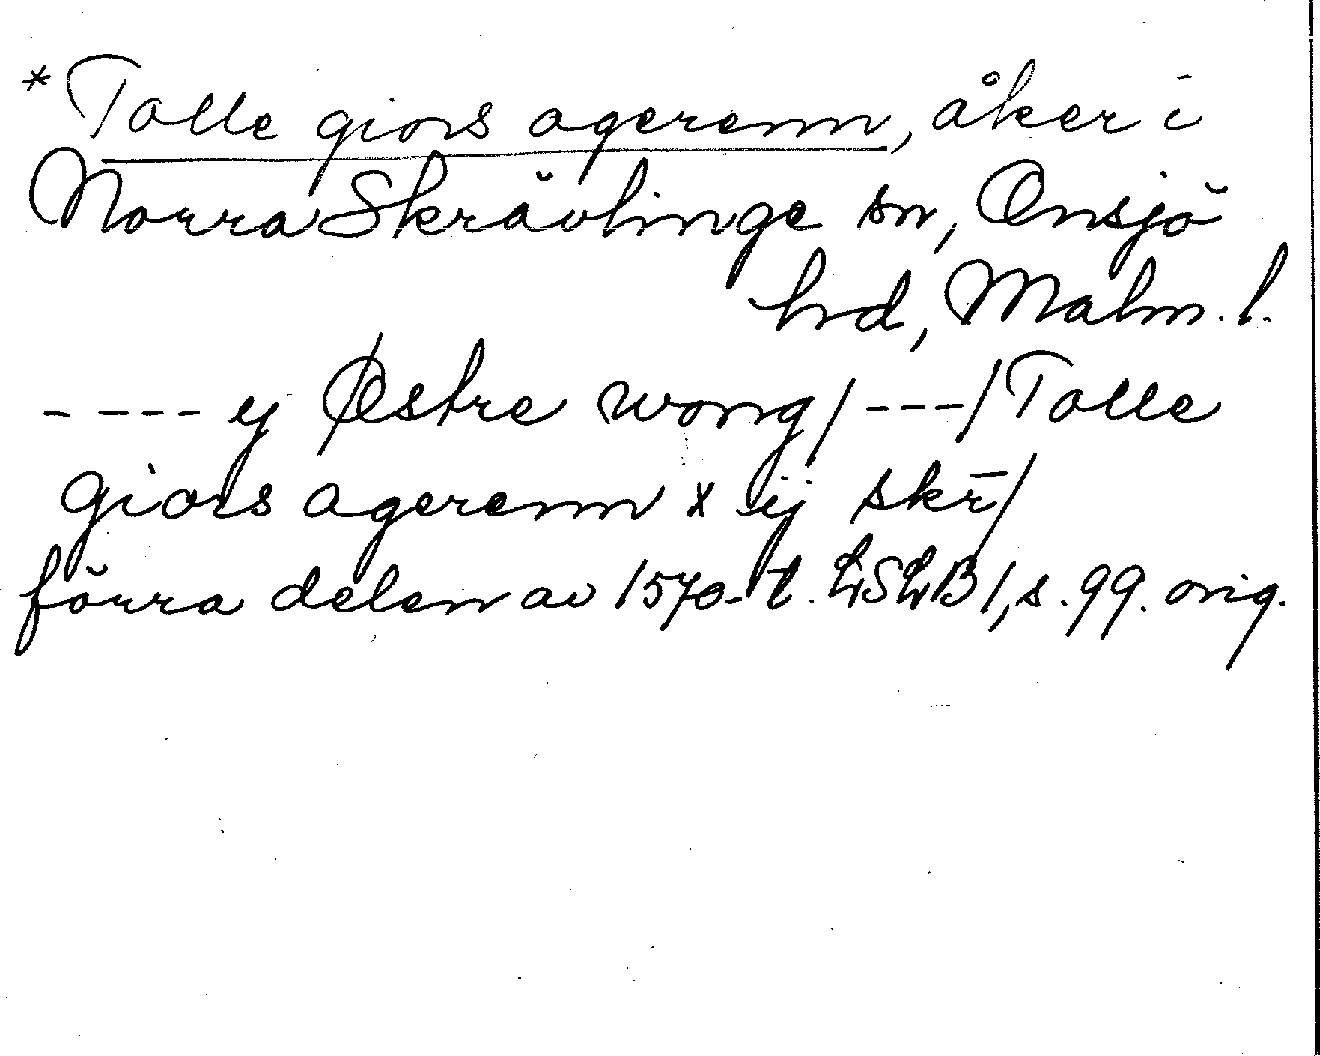 *Tolle giors agerenn, åker i
Norra Skrävlinge sn, Onsjö
hd, Malm. l.
- - - - - y Østre wong / - - - / Tolle
giors agerenn x ij skr̄ /
förra delen av 1570-t. LSLB 1, s. 99. orig.